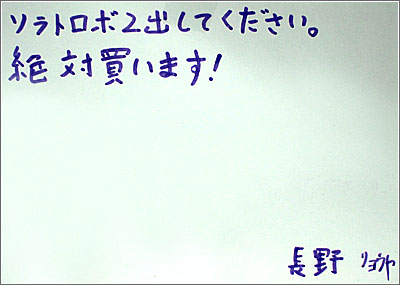 ソラトロボ2出してください。
絶対買います!
長野 リョウヤ